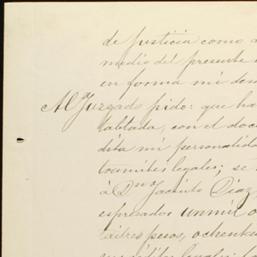 de justicia como
medio del presente
en forma mi
Al Juzgado pido: que ha
tablada, con el doc
dita mi personalida
tramites legales; se
á Dn Jacinto Diaz
espresados un mil
pesos, ochenta